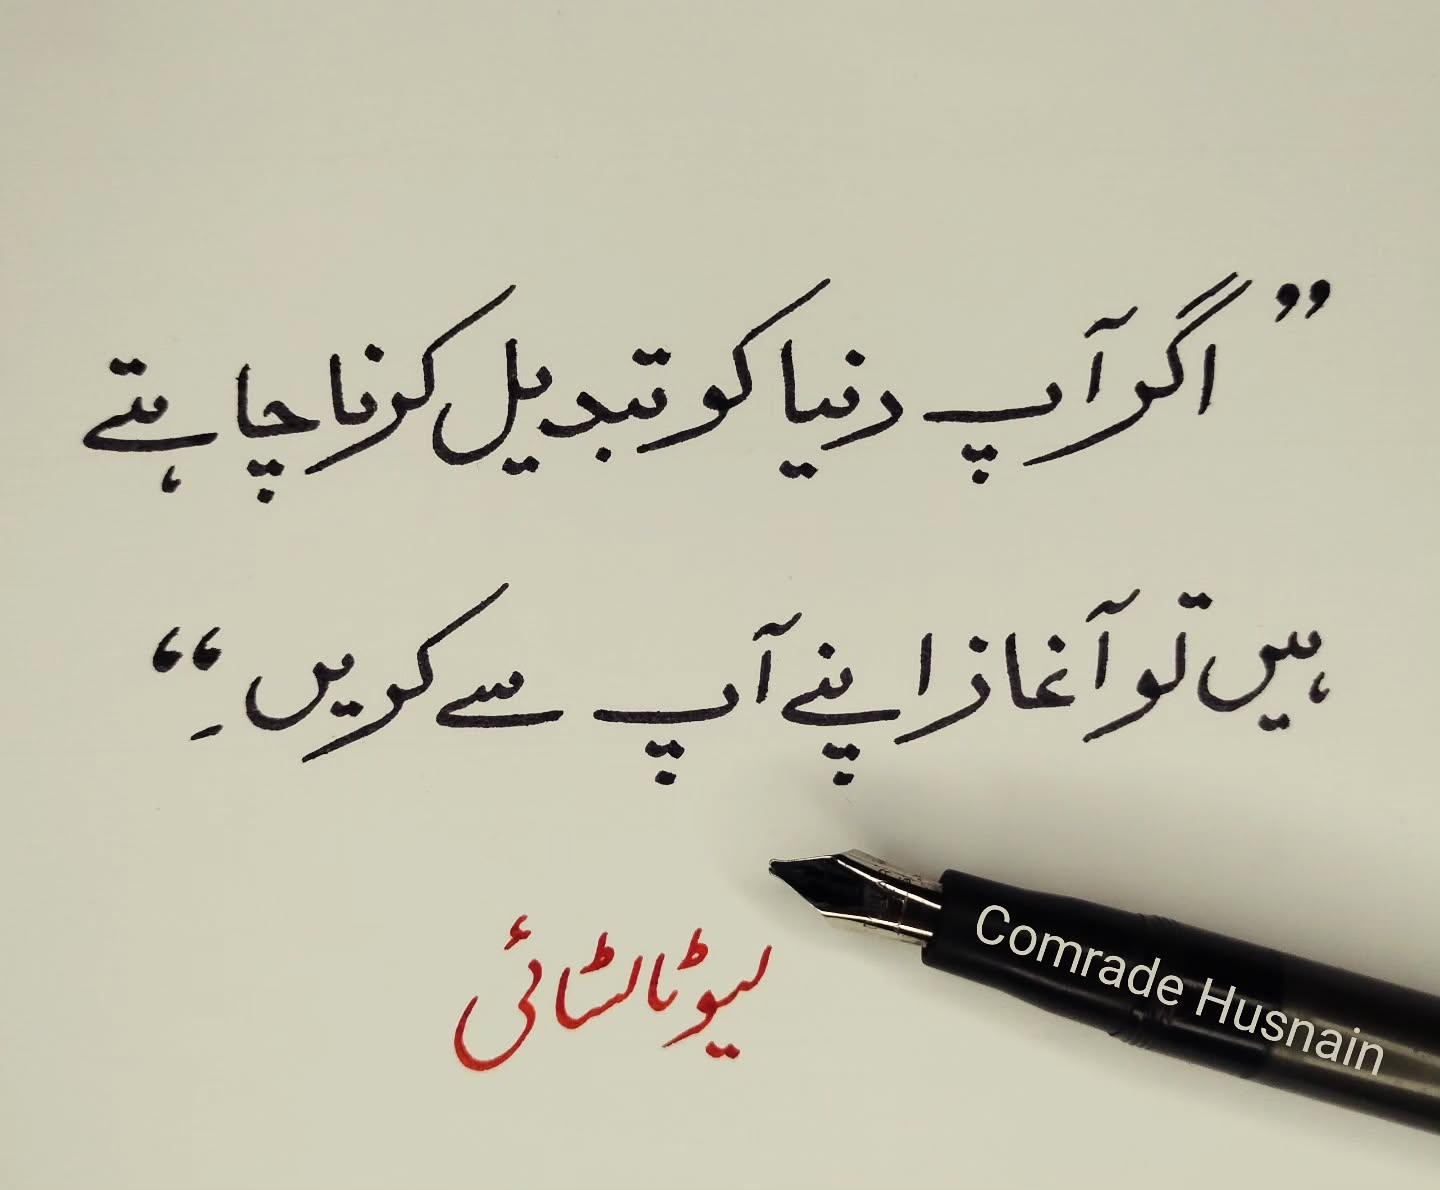 ”اگر آپ دنیا کو تبدیل کرنا چاہتے
ہیں تو آغاز اپنے آپ سے کریں۔“
لیو ٹالسٹائی
Comrade Husnain